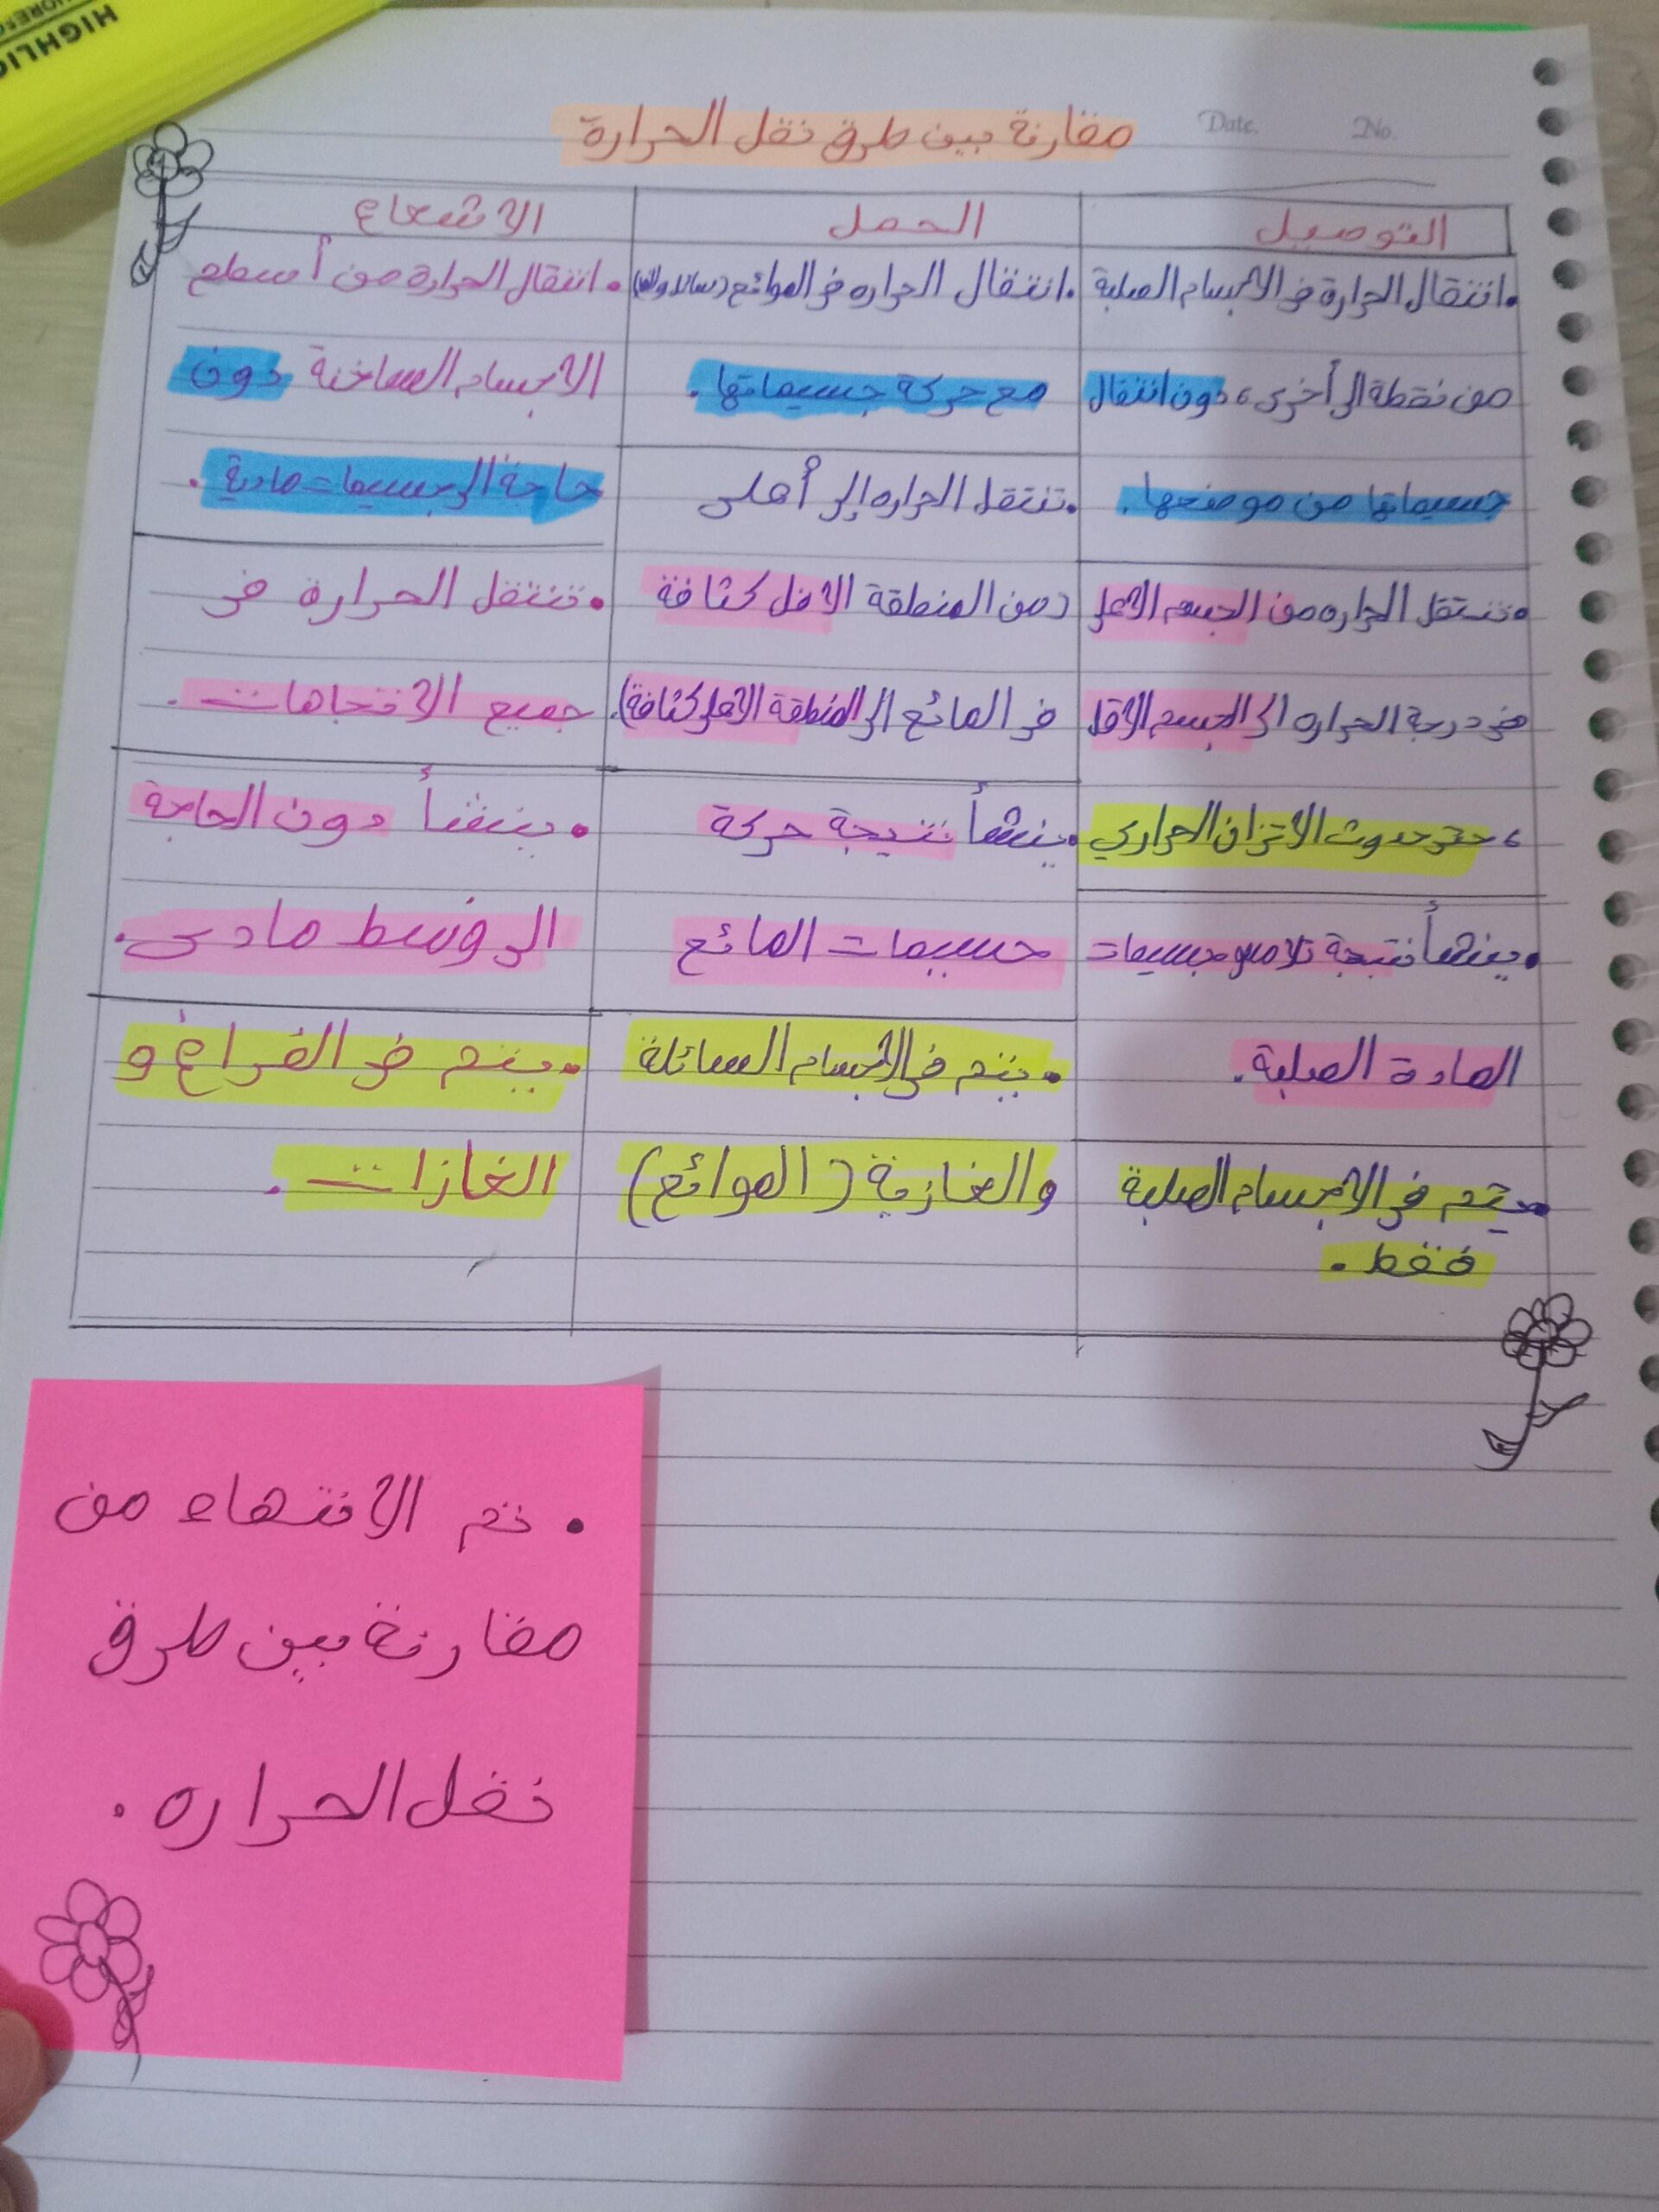 HIGHLIG
مقارنة بين طرق نقل الحرارة
Date.
No.
التوصيل
• انتقال الحرارة في الاجسام الصلبة
من نقطة الى أخرى، دون انتقال
جسيماتها من موضعها.
• تنتقل الحراره من الجسم الاعلى
في درجة الحراره الى الجسم الاقل
، حتى حدوث الاتزان الحراري
• ينشأ نتيجة تلامس جسيمات
المادة الصلبة.
• يتم في الاجسام الصلبة
فقط .
الحمل
• انتقال الحراره في الموائع
مع حركة جسيماتها .
• تنتقل الحراره إلى أعلى
(من المنطقة الاقل كثافة
في المائع الى المنطقة الاعلى كثافة).
• ينشأ نتيجة حركة
جسيمات المائع
• يتم في الاجسام السائلة
والغازية (الموائع)
الاشعاع
• انتقال الحرارة من أسطح
الاجسام الساخنة دون
حاجة الى جسيمات مادية .
• تنتقل الحرارة في
جميع الاتجاهات .
• ينشأ دون الحاجة
الى وسط مادى .
• يتم في الفراغ و
الغازات .
• تم الانتهاء من
مقارنة بين طرق
نقل الحراره .